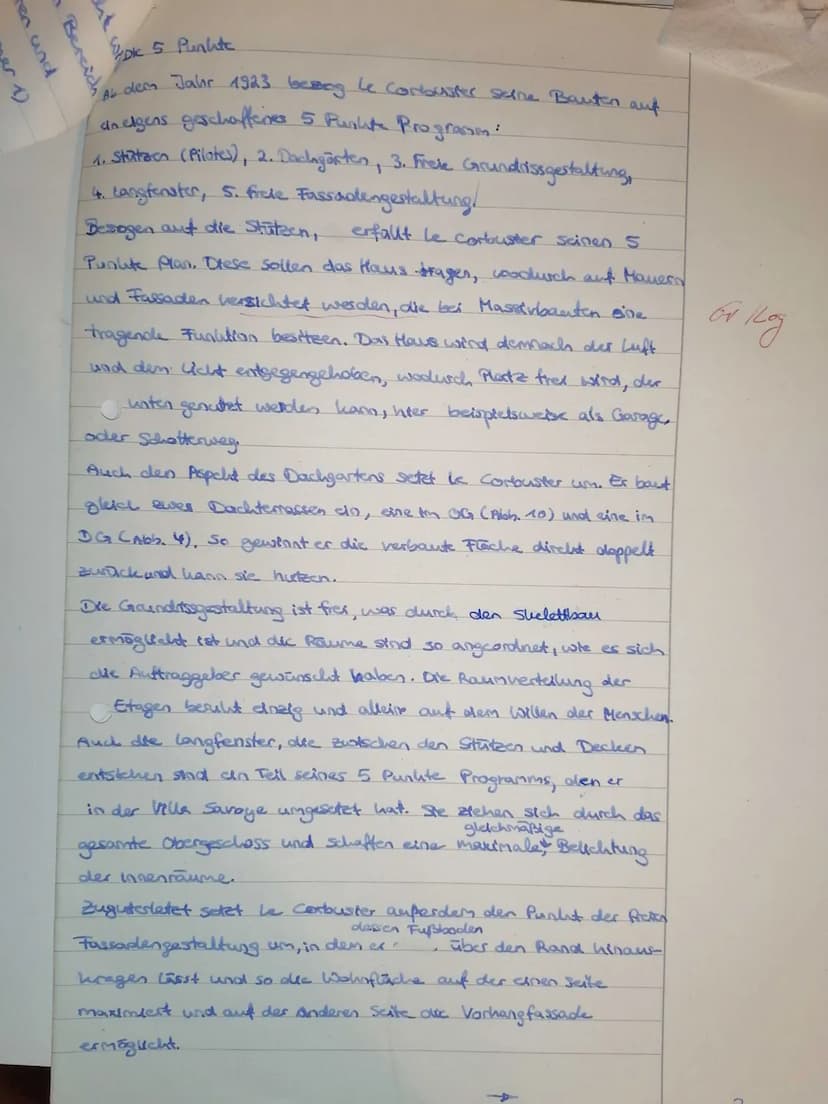 en und
Bereich
Die 5 Punkte
Ab dem Jahr 1923 bezog Le Corbusier seine Bauten auf
ein eigens geschaffenes 5 Punkte Programm:
1. Stützen (Pilotes), 2. Dachgärten, 3. Freie Grundrissgestaltung,
4. Langfenster, 5. freie Fassadengestaltung.
Bezogen auf die Stützen, erfüllt Le Corbusier seinen 5
Punkte Plan. Diese sollen das Haus tragen, wodurch auf Mauern
und Fassaden verzichtet werden, die bei Massivbauten eine
tragende Funktion besitzen. Das Haus wird demnach der Luft
und dem Licht entgegengehoben, wodurch Platz frei wird, der
unten genutzt werden kann, hier beispielsweise als Garage,
oder Schotterweg.
Auch den Aspekt des Dachgartens setzt Le Corbusier um. Er baut
gleich zwei Dachterrassen ein, eine im OG (Abb. 10) und eine im
DG (Abb. 4). So gewinnt er die verbaute Fläche direkt doppelt
zurück und kann sie nutzen.
Die Grundrissgestaltung ist frei, was durch den Skelettbau
ermöglicht ist und die Räume sind so angeordnet, wie es sich
die Auftraggeber gewünscht haben. Die Raumverteilung der
Etagen beruht einzig und allein auf dem Willen der Menschen.
Auch die Langfenster, die zwischen den Stützen und Decken
entstehen sind ein Teil seines 5 Punkte Programms, den er
in der Villa Savoye umgesetzt hat. Sie ziehen sich durch das
gleichmäßige
gesamte Obergeschoss und schaffen eine maximale, Belichtung
der Innenräume.
Zuguterletzt setzt Le Corbusier außerdem den Punkt der freien
dessen Fußboden
Fassadengestaltung um, in dem er über den Rand hinaus-
kragen lässt und so die Wohnfläche auf der einen Seite
maximiert und auf der anderen Seite die Vorhangfassade
ermöglicht.
→